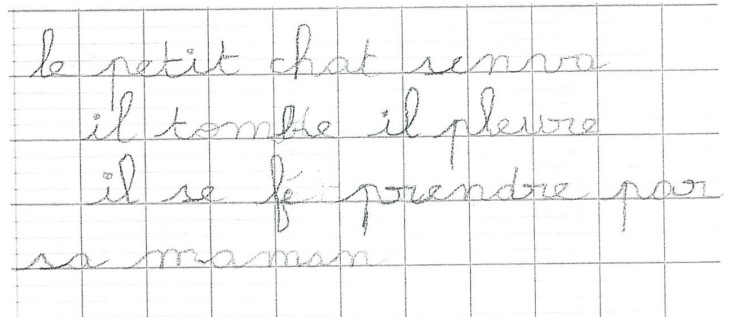 le petit chat senva
il tombe il pleure
il se fé prendre par
sa maman